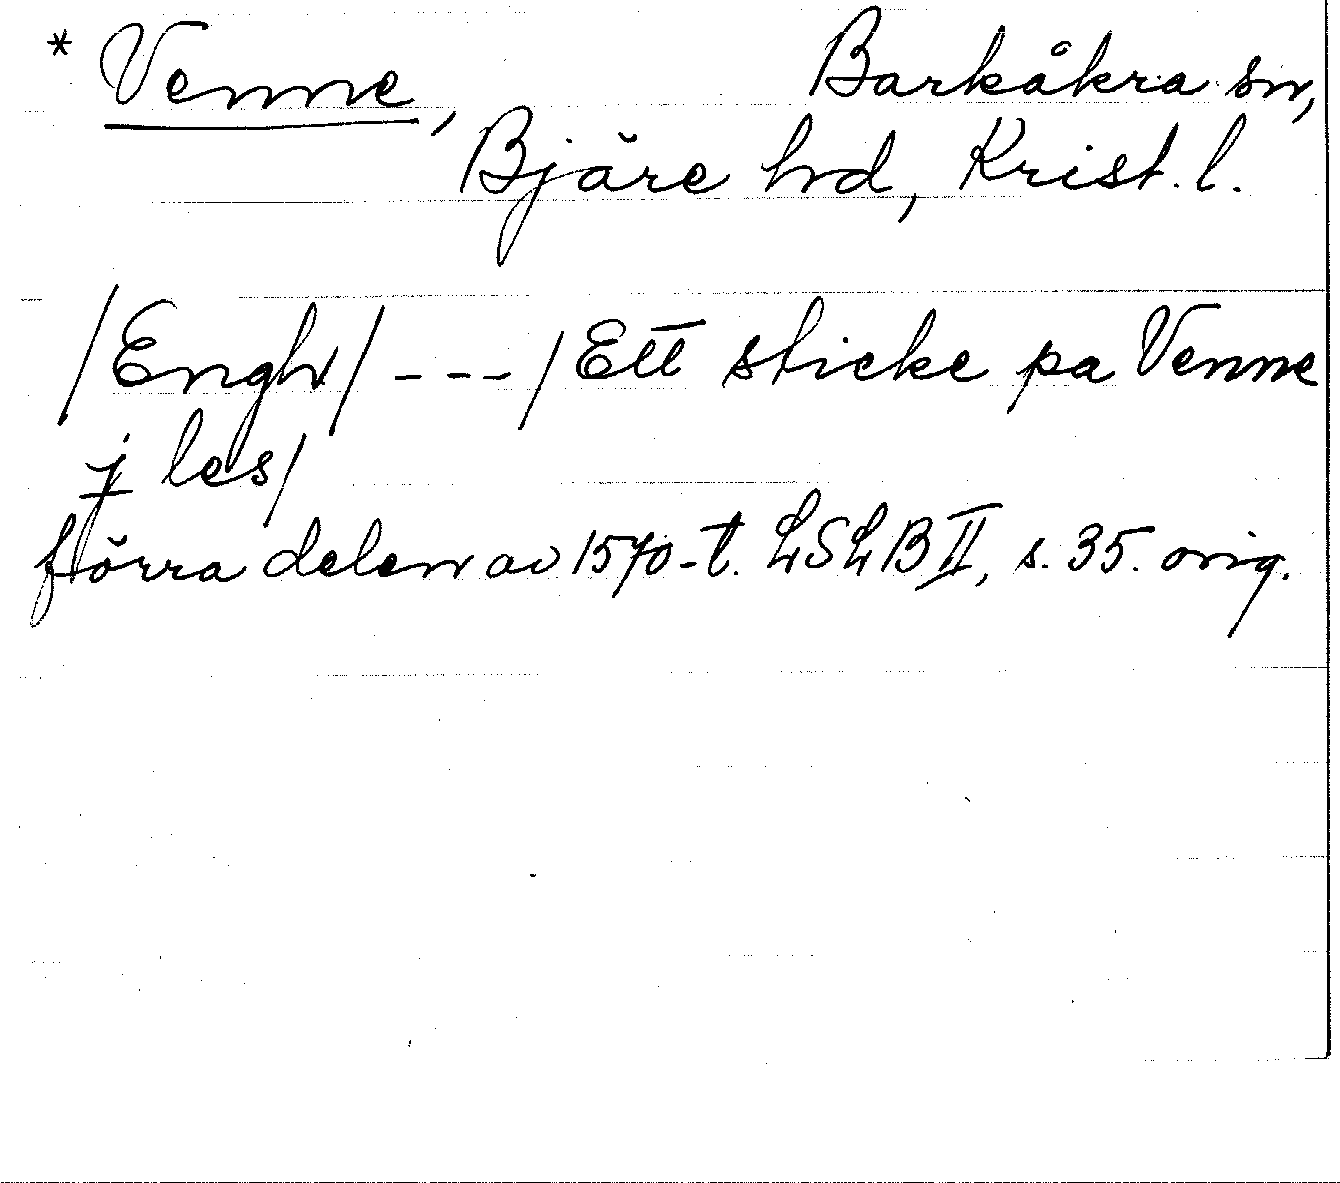 * Venne, Barkåkra sn,
Bjäre hd, Krist. l.
/Engh/ --- / Ett sticke pa Venne
j les/
förra delen av 1570-t. LSLB II, s. 35. orig.